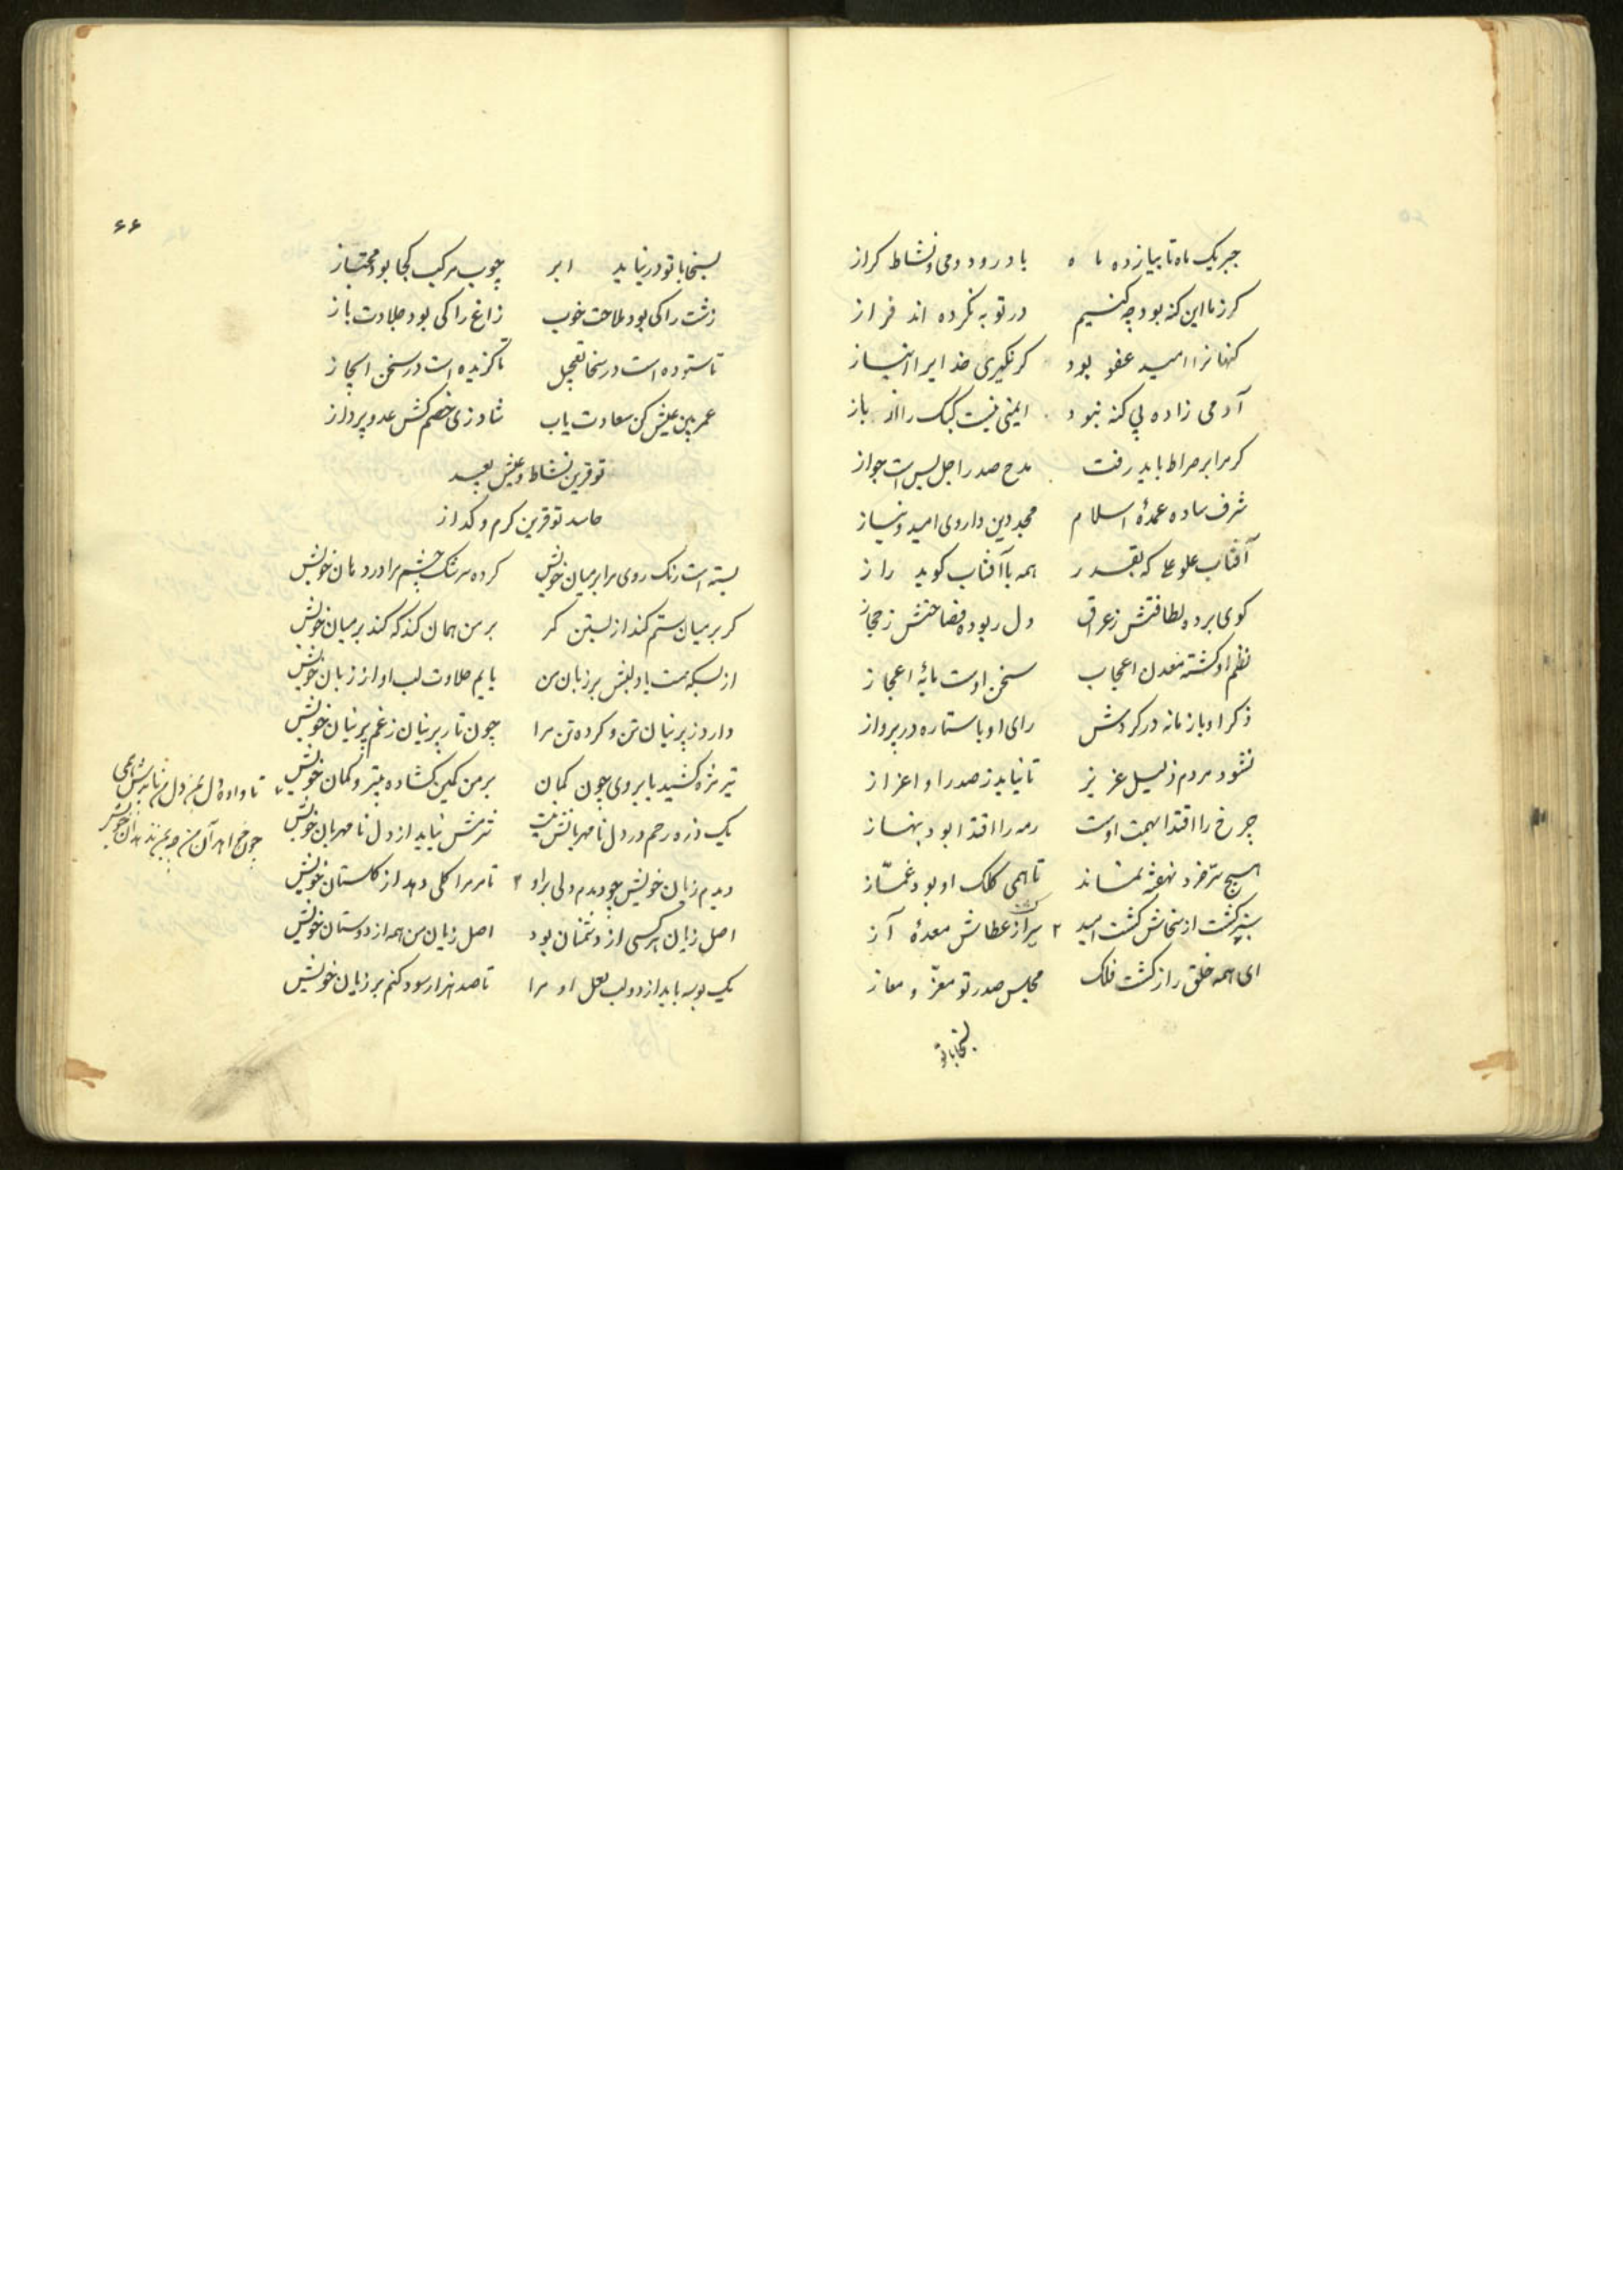 جبر یک ماه تا بیازده ماه باد رود و می و نشاط کراز
کرز ما این کنه بود چه کنیم در توبه نکرده اند فراز
کنهانرا امید عفو بود کر نکیری خدایرا انباز
آدمی زاده بی کنه نبود ایمنی نیست کبک را از باز
کر مرا بر صراط باید رفت مدح صدر اجل بس است جواز
شرف ساده عمدهٔ اسلام مجد دین داروی امید و نیاز
آفتاب علو علی که بقدر همه با آفتاب کوید راز
کوی برده لطافتش ز عراق دل ربوده فصاحتش ز حجاز
نظم او کشته معدن اعجاب سخن اوست مایهٔ اعجاز
ذکر او با زمانه در کردش رای او با ستاره در پرواز
نشود مردم ذلیل عزیز تا نیابد ز صدر او اعزاز
چرخ را اقتدا بهمت اوست رمه را اقتدا بود بنهاز
هیچ سرّ خرد نهفته نماند تا همی کلک او بود غمّاز
سیر کشت از سخاش کشت امید ۲ سیر از عطاش معدهٔ آز
ای همه خلق را ز کشت فلک مجلس صدر تو معزّ و معاز
بسخا با تو
۶۶
بسخا با تو در نیاید ابر چوب مرکب کجا بود محتاز
زشت را کی بود ملاحت خوب زاغ را کی بود جلادت باز
تا ستوده است در سخا تعجیل تا کزیده است در سخن ایجاز
عمر بین عیش کن سعادت یاب شاد زی خصم کش عدو پرداز
تو قرین نشاط و عیش بعید
حاسد تو قرین کرم و کداز
بسته است رنک روی مرا بر میان خویش کرده سرشک چشم مرا در دهان خویش
کر بر میان ستم کند از بستن کمر بر من همان کند که کند بر میان خویش
از بسکه هست یاد لبش بر زبان من یابم حلاوت لب او از زبان خویش
دارد ز پرنیان تن و کرده تن مرا چون تار پرنیان ز غم پرنیان خویش
تیر مژه کشید بابروی چون کمان بر من کمین کشاده بتیر و کمان خویش
تا داده ام بمن دل من
یک ذره رحم در دل نا مهربانش نیست شرمش نیاید از دل نا مهربان خویش
چون خواهد آن من
دیدم زیان خویش چو دیدم دلی براو ۲ تا مر مرا کلی دهد از کلستان خویش
اصل زیان هر کسی از دشمنان بود اصل زیان من همه از دوستان خویش
یک بوسه باید از دو لب لعل او مرا تا صد هزار سود کنم بر زیان خویش